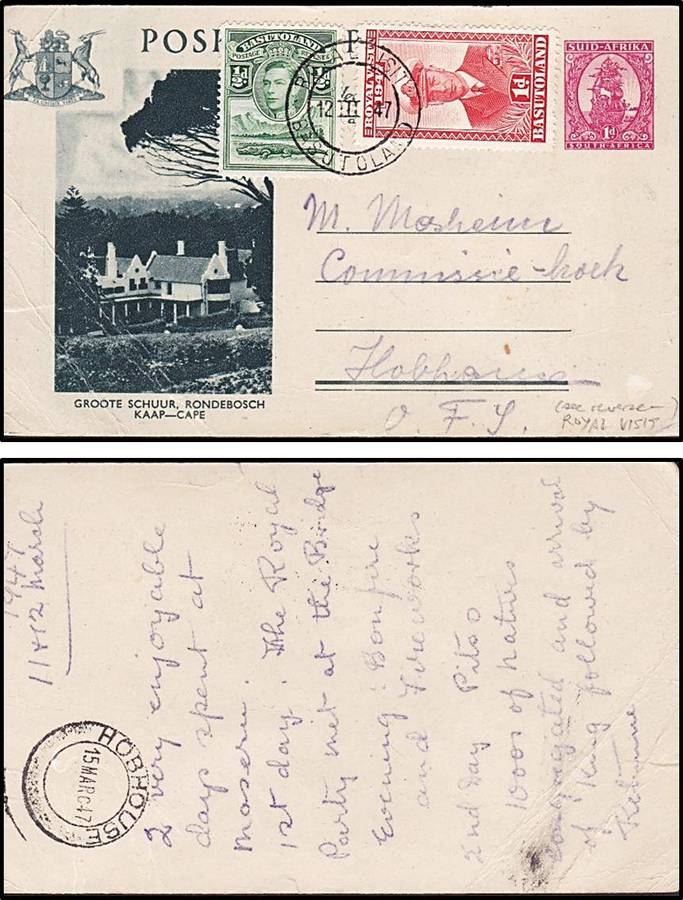 POS
BASUTOLAND
POSTAGE REVENUE
½d ½d
ROYAL VISIT
1947
1d
BASUTOLAND
ROYAL VISIT
12 III 47
BASUTOLAND
SUID-AFRIKA
1d
SOUTH-AFRICA
M. Mosheim
Commissie-hoek
Hobhouse
O. F. S.
GROOTE SCHUUR, RONDEBOSCH
KAAP—CAPE
(see reverse—)
ROYAL VISIT
1947
11 & 12 March
2 very enjoyable
days spent at
Maseru.
1st day. The Royal
Party met at the Bridge
Evening: Bonfire
and Fireworks
2nd Day Pitso
1000s of natives
congregated and arrival
of King followed by
HOBHOUSE
15 MARC 47